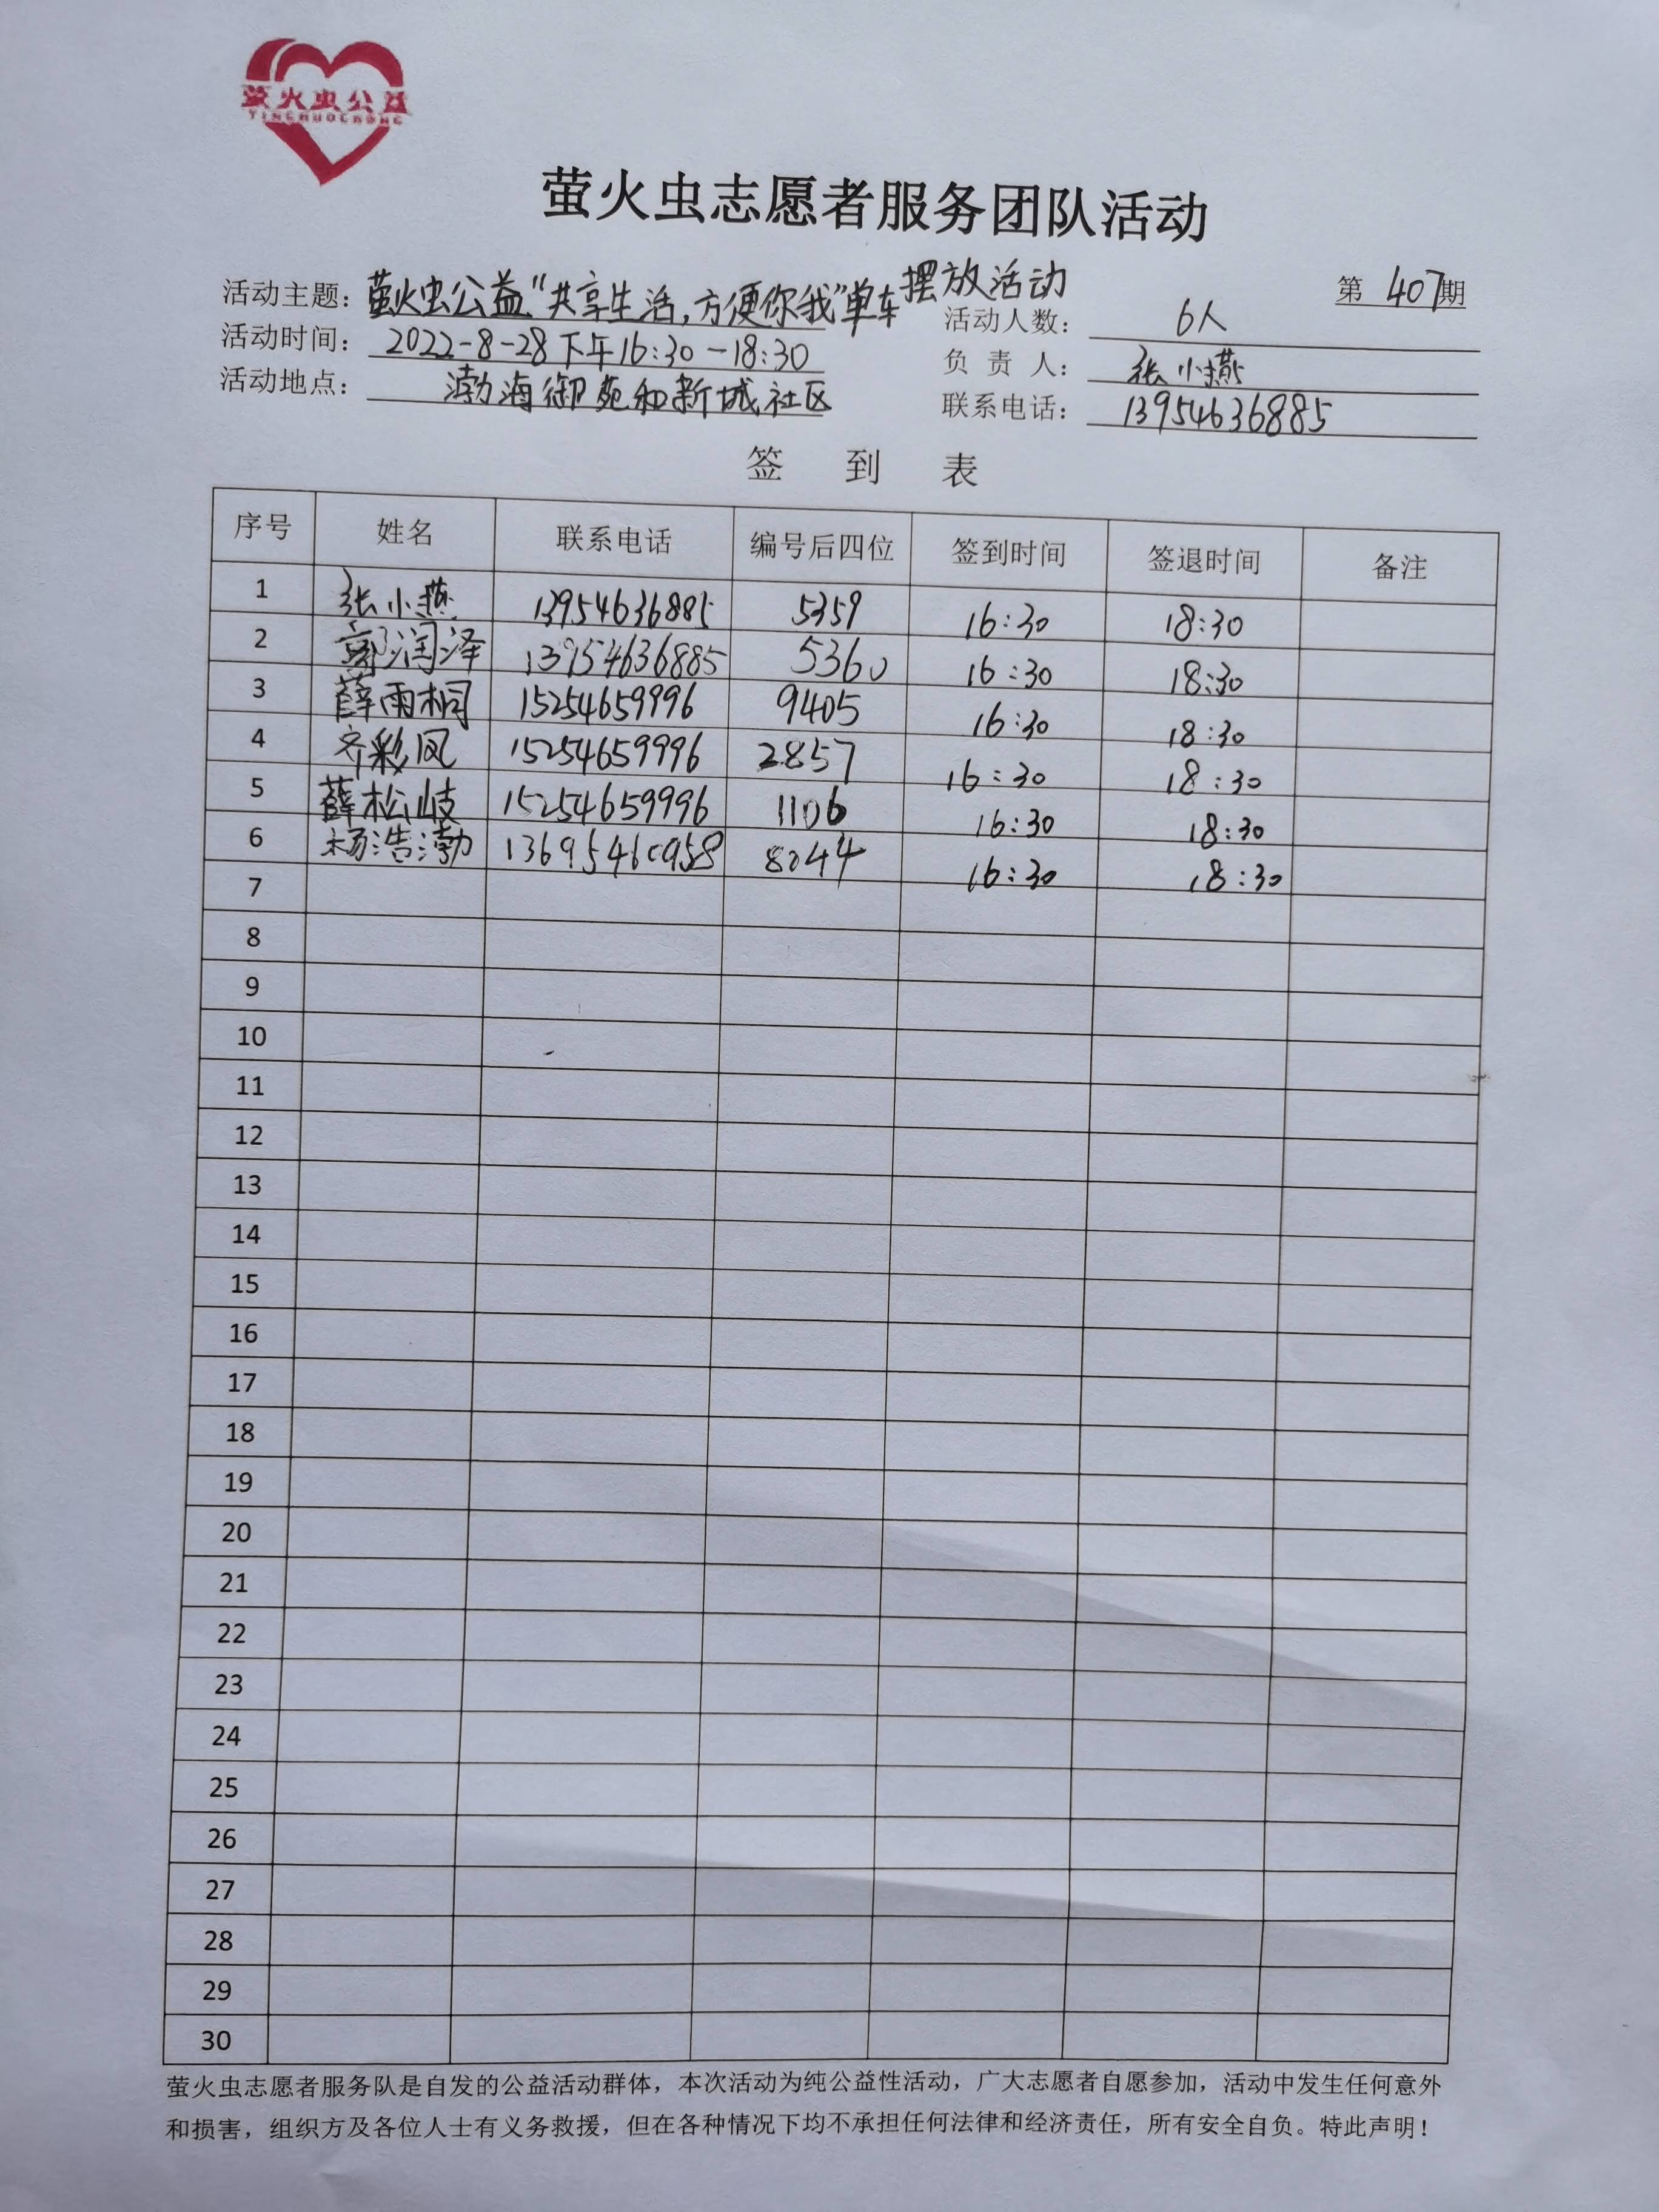 萤火虫公益
YINGHUOCHONG
萤火虫志愿者服务团队活动
第 407期
活动主题：萤火虫公益“共享生活,方便你我”单车摆放活动
活动人数： 6人
活动时间： 2022-8-28下午16:30-18:30
负 责 人： 张小燕
活动地点： 渤海御苑和新城社区
联系电话： 13954636885
签 到 表
序号 姓名 联系电话 编号后四位 签到时间 签退时间 备注
1 张小燕 13954636885 5359 16:30 18:30
2 郭润泽 13954636885 5360 16:30 18:30
3 薛雨桐 15254659996 9405 16:30 18:30
4 齐彩凤 15254659996 2857 16:30 18:30
5 薛松岐 15254659996 1106 16:30 18:30
6 杨浩渤 13695460958 8044 16:30 18:30
7
8
9
10
11
12
13
14
15
16
17
18
19
20
21
22
23
24
25
26
27
28
29
30
萤火虫志愿者服务队是自发的公益活动群体，本次活动为纯公益性活动，广大志愿者自愿参加，活动中发生任何意外
和损害，组织方及各位人士有义务救援，但在各种情况下均不承担任何法律和经济责任，所有安全自负。特此声明！